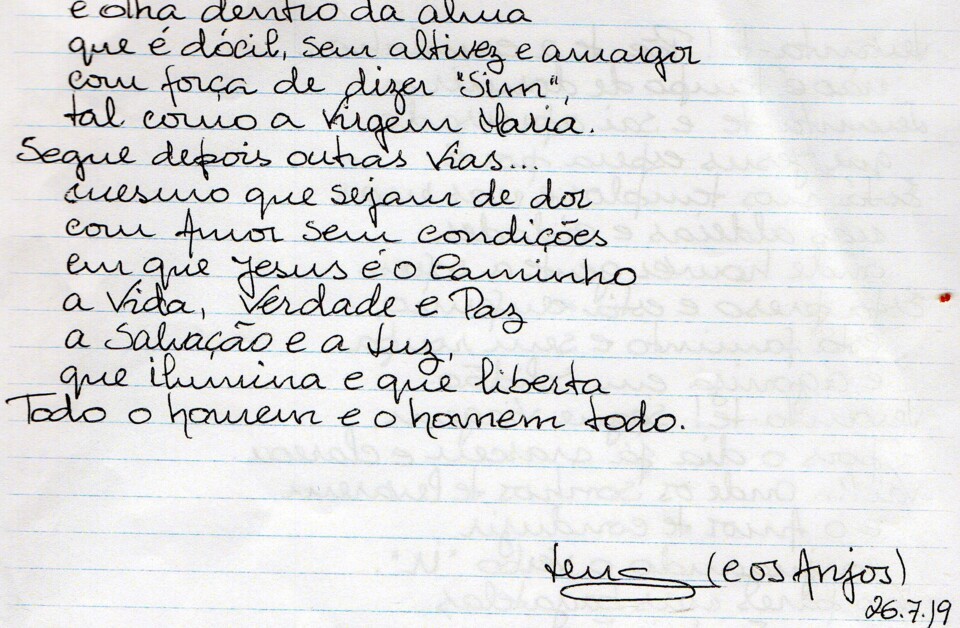 e olha dentro da alma
que é dócil, sem altivez e amargor
com força de dizer "Sim",
tal como a Virgem Maria.
Segue depois outras vias...
mesmo que sejam de dor
com Amor sem condições
em que Jesus é o Caminho
a Vida, Verdade e Paz
a Salvação e a Luz,
que ilumina e que liberta
Todo o homem e o homem todo.
(e os Anjos)
26.7.19